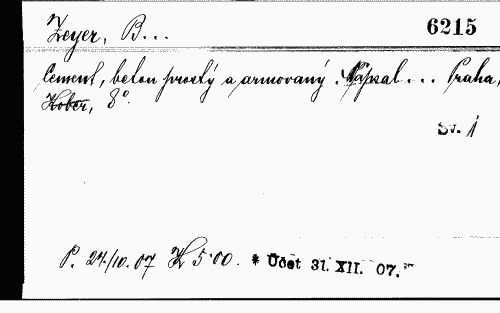 Zeyer, B...
6215
Cement, beton prostý a armovaný. Napsal... Praha,
Kober, 8°.
Sv. 1
P. 24/10. 07 K 5·00. * Účet 31. XII. 07.